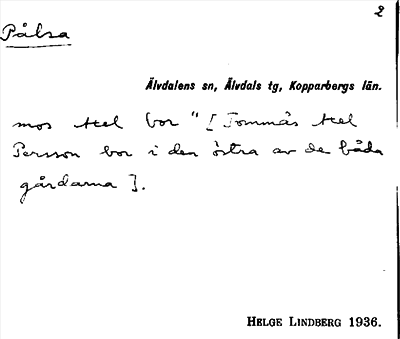 2
Pålsa
Älvdalens sn, Älvdals tg, Kopparbergs län.
mos Axel bor " [Tommås Axel
Persson bor i den östra av de båda
gårdarna].
HELGE LINDBERG 1936.